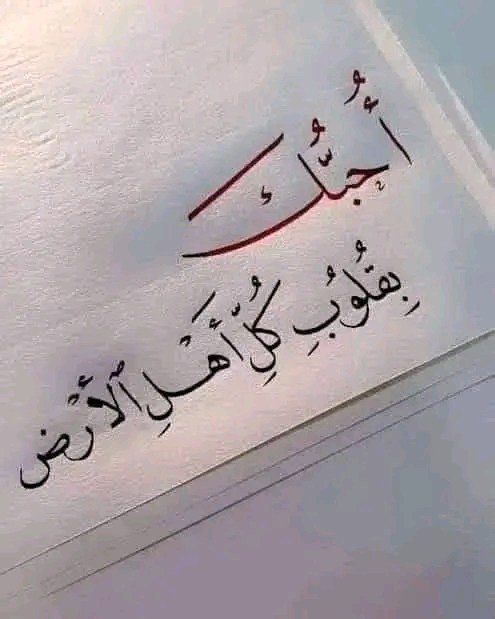 أُحِبُّكَ
بِقُلُوبِ كُلِّ أَهْلِ الْأَرْضِ